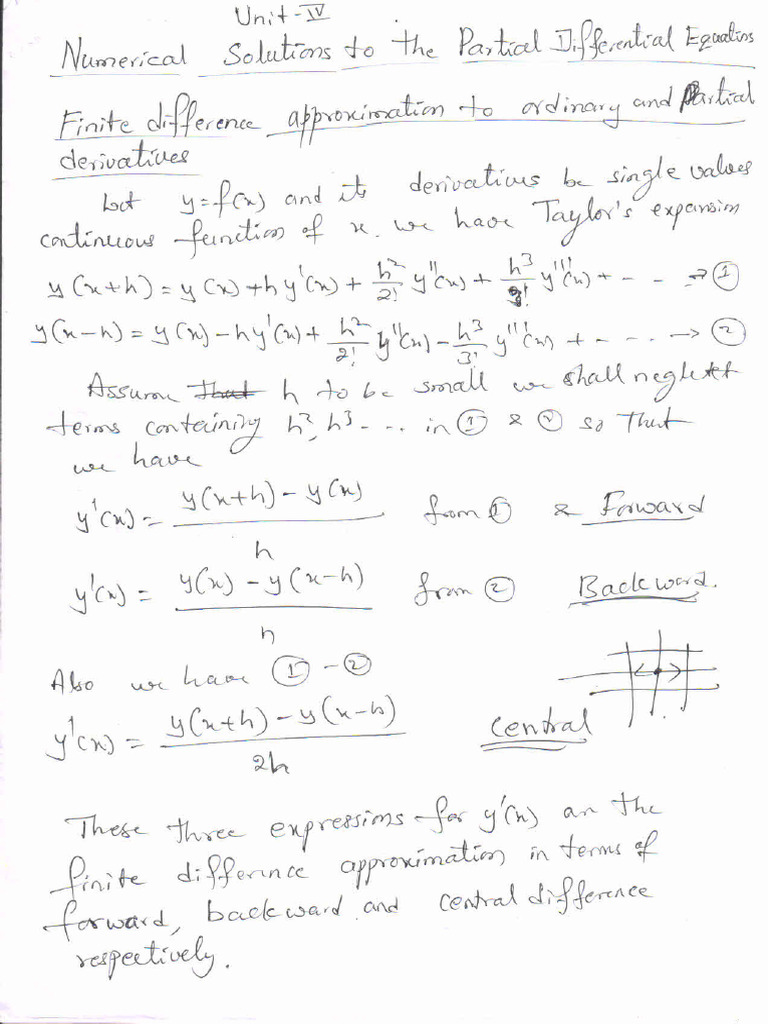 Unit-IV
Numerical Solutions to the Partial Differential Equations
Finite difference approximation to ordinary and Partial
derivatives
Let y=f(x) and its derivatives be single values
continuous function of x. we have Taylor's expansion
y(x+h) = y(x)+hy'(x)+ h²/2! y''(x)+ h³/3! y'''(x)+ - - -> ①
y(x-h) = y(x)-hy'(x)+ h²/2! y''(x)- h³/3! y'''(x) + - . - . -> ②
Assume that h to be small we shall neglect
terms containing h², h³ - - .. in ① & ② so that
we have
y'(x) = y(x+h) - y(x) / h from ① & Forward
y'(x) = y(x) - y(x-h) / h from ② Backward.
Also we have ① - ②
y'(x) = y(x+h) - y(x-h) / 2h central
These three expressions for y'(x) are the
finite difference approximation in terms of
forward, backward and central difference
respectively.